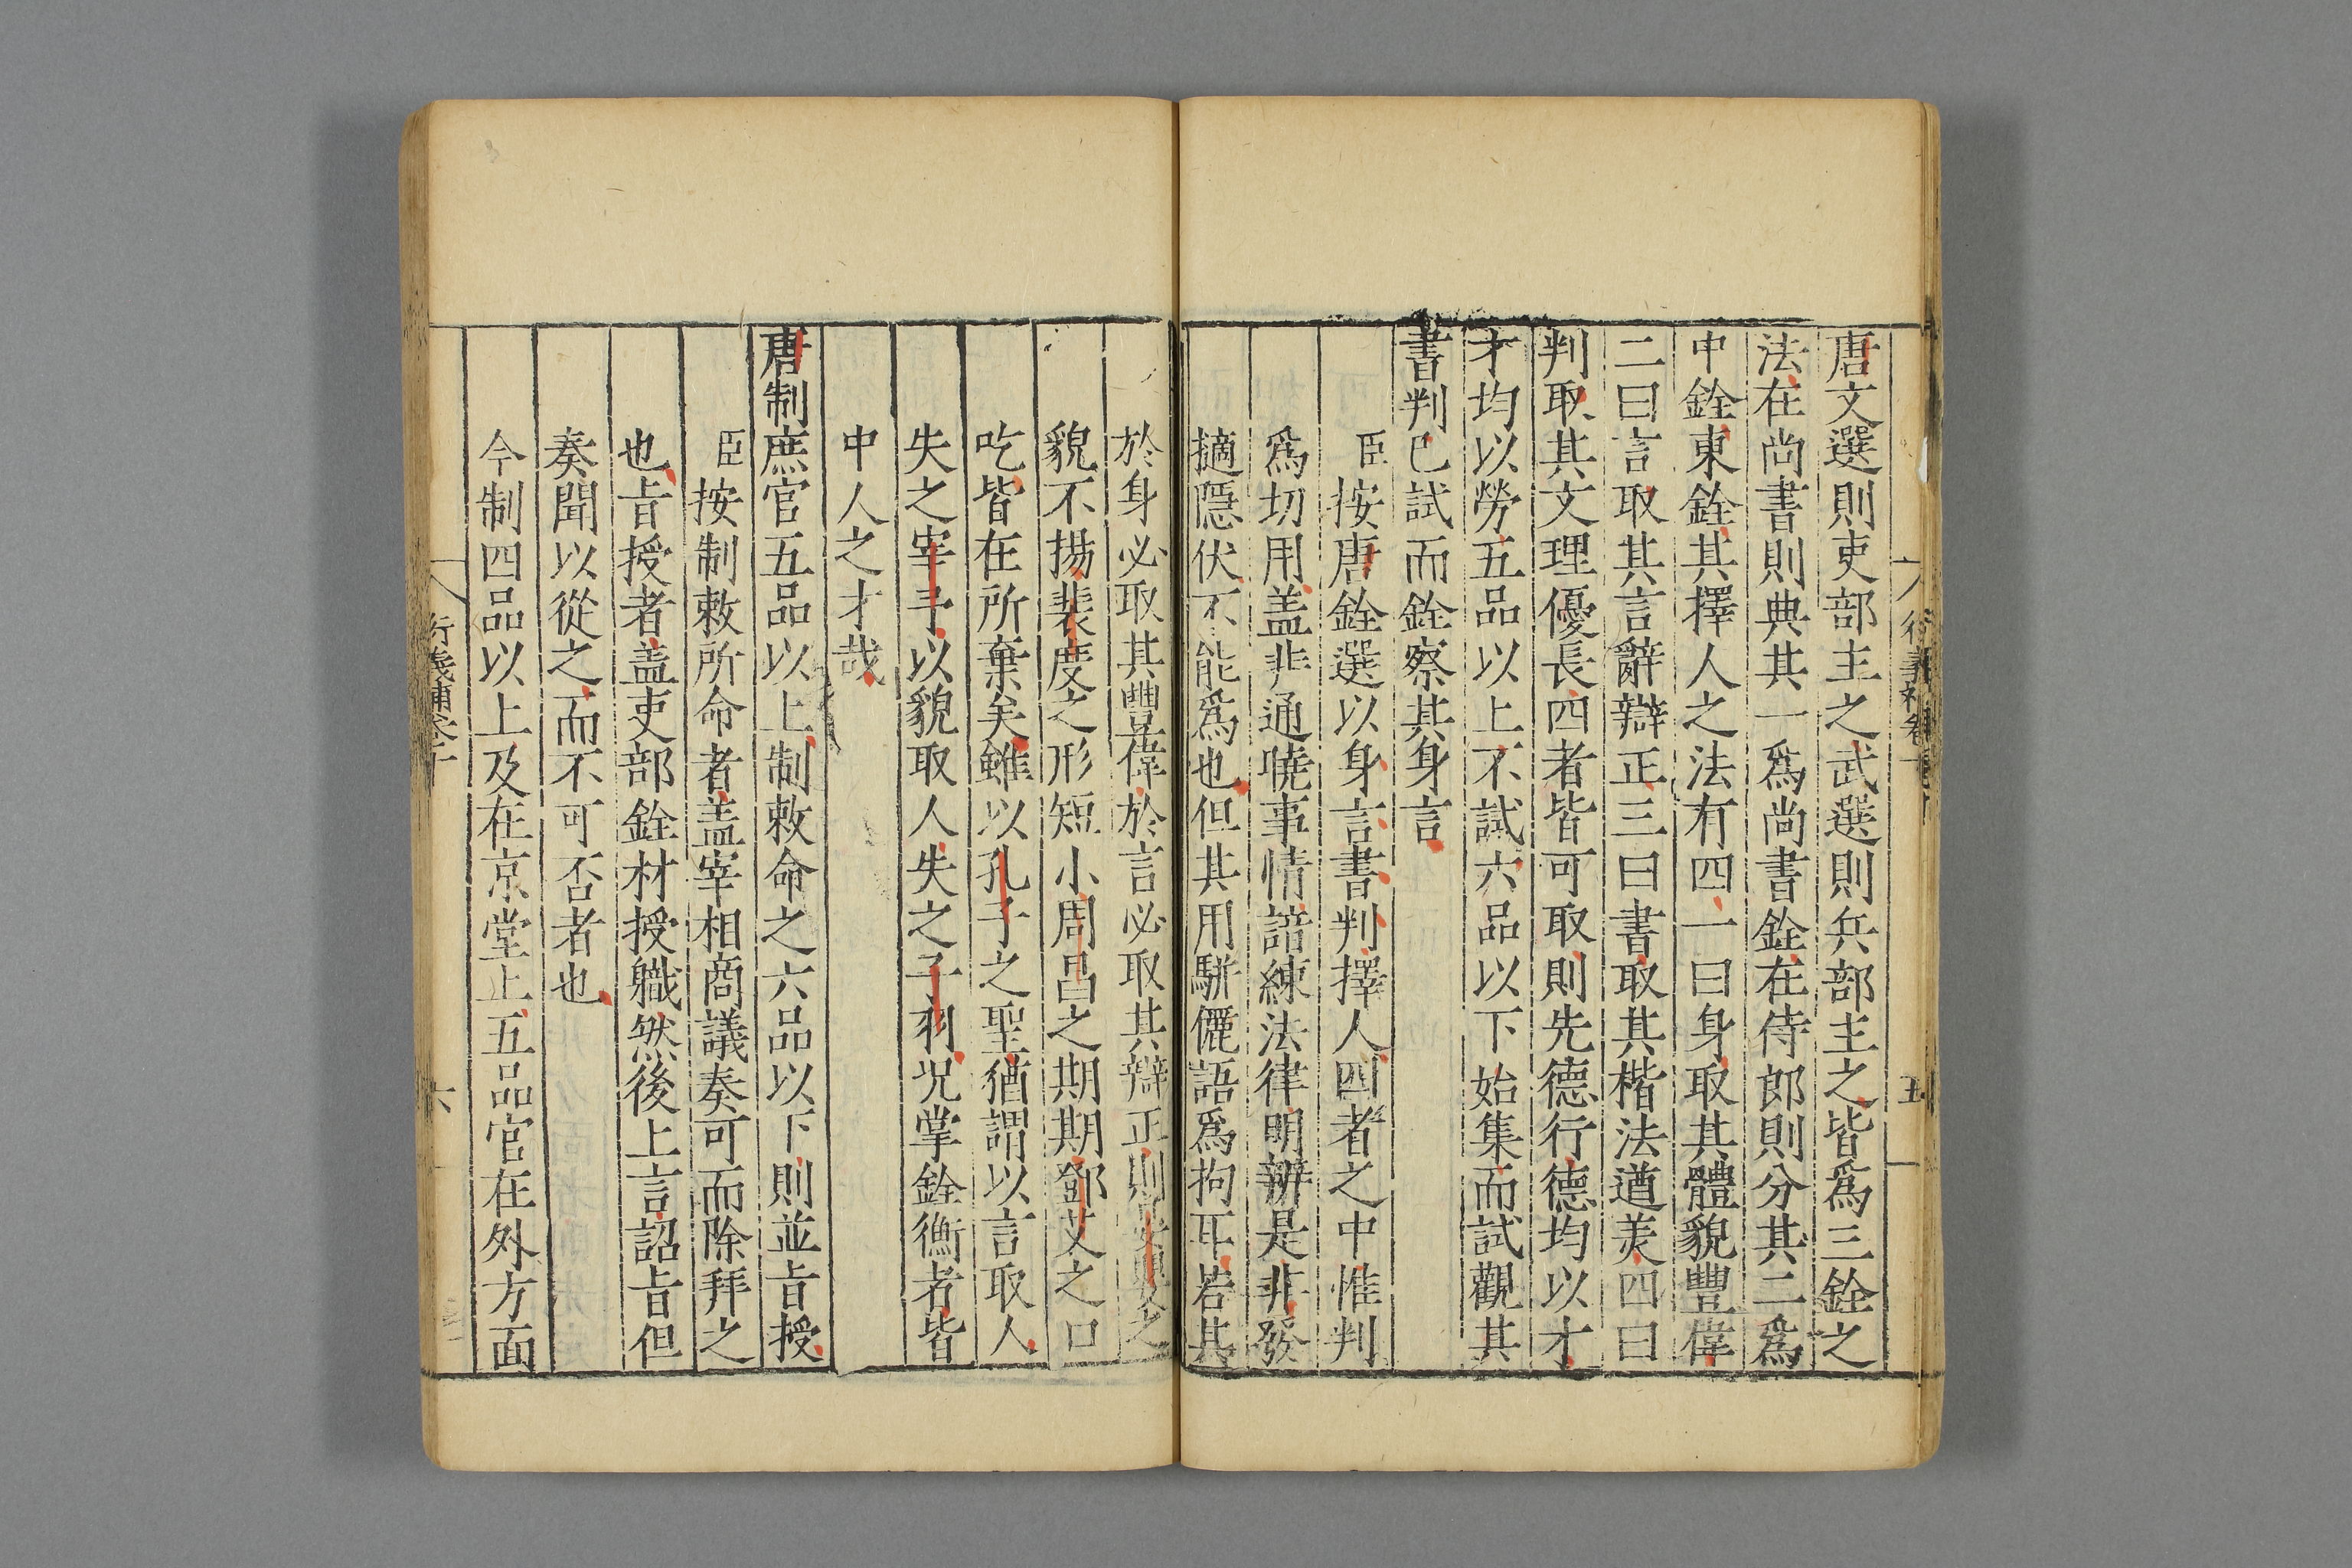 衍義補卷十
五
唐文選則吏部主之武選則兵部主之皆爲三銓之
法在尚書則典其一爲尚書銓在侍郎則分其二爲
中銓東銓其擇人之法有四一曰身取其體貌豐偉
二曰言取其言辭辯正三曰書取其楷法遒美四曰
判取其文理優長四者皆可取則先德行德均以才
才均以勞五品以上不試六品以下始集而試觀其
書判已試而銓察其身言
臣按唐銓選以身言書判擇人四者之中惟判
爲切用盖非通曉事情諳練法律明辨是非發
擿隱伏不能爲也但其用駢儷語爲拘耳若其
於身必取其豐偉於言必取其辯正則晏嬰之
貌不揚裴度之形短小周昌之期期鄧艾之口
吃皆在所棄矣雖以孔子之聖猶謂以言取人
失之宰予以貌取人失之子羽况掌銓衡者皆
中人之才哉
唐制庶官五品以上制敕命之六品以下則並旨授
臣按制敕所命者盖宰相商議奏可而除拜之
也旨授者盖吏部銓材授職然後上言詔旨但
奏聞以從之而不可否者也
今制四品以上及在京堂上五品官在外方面
衍義補卷十
六